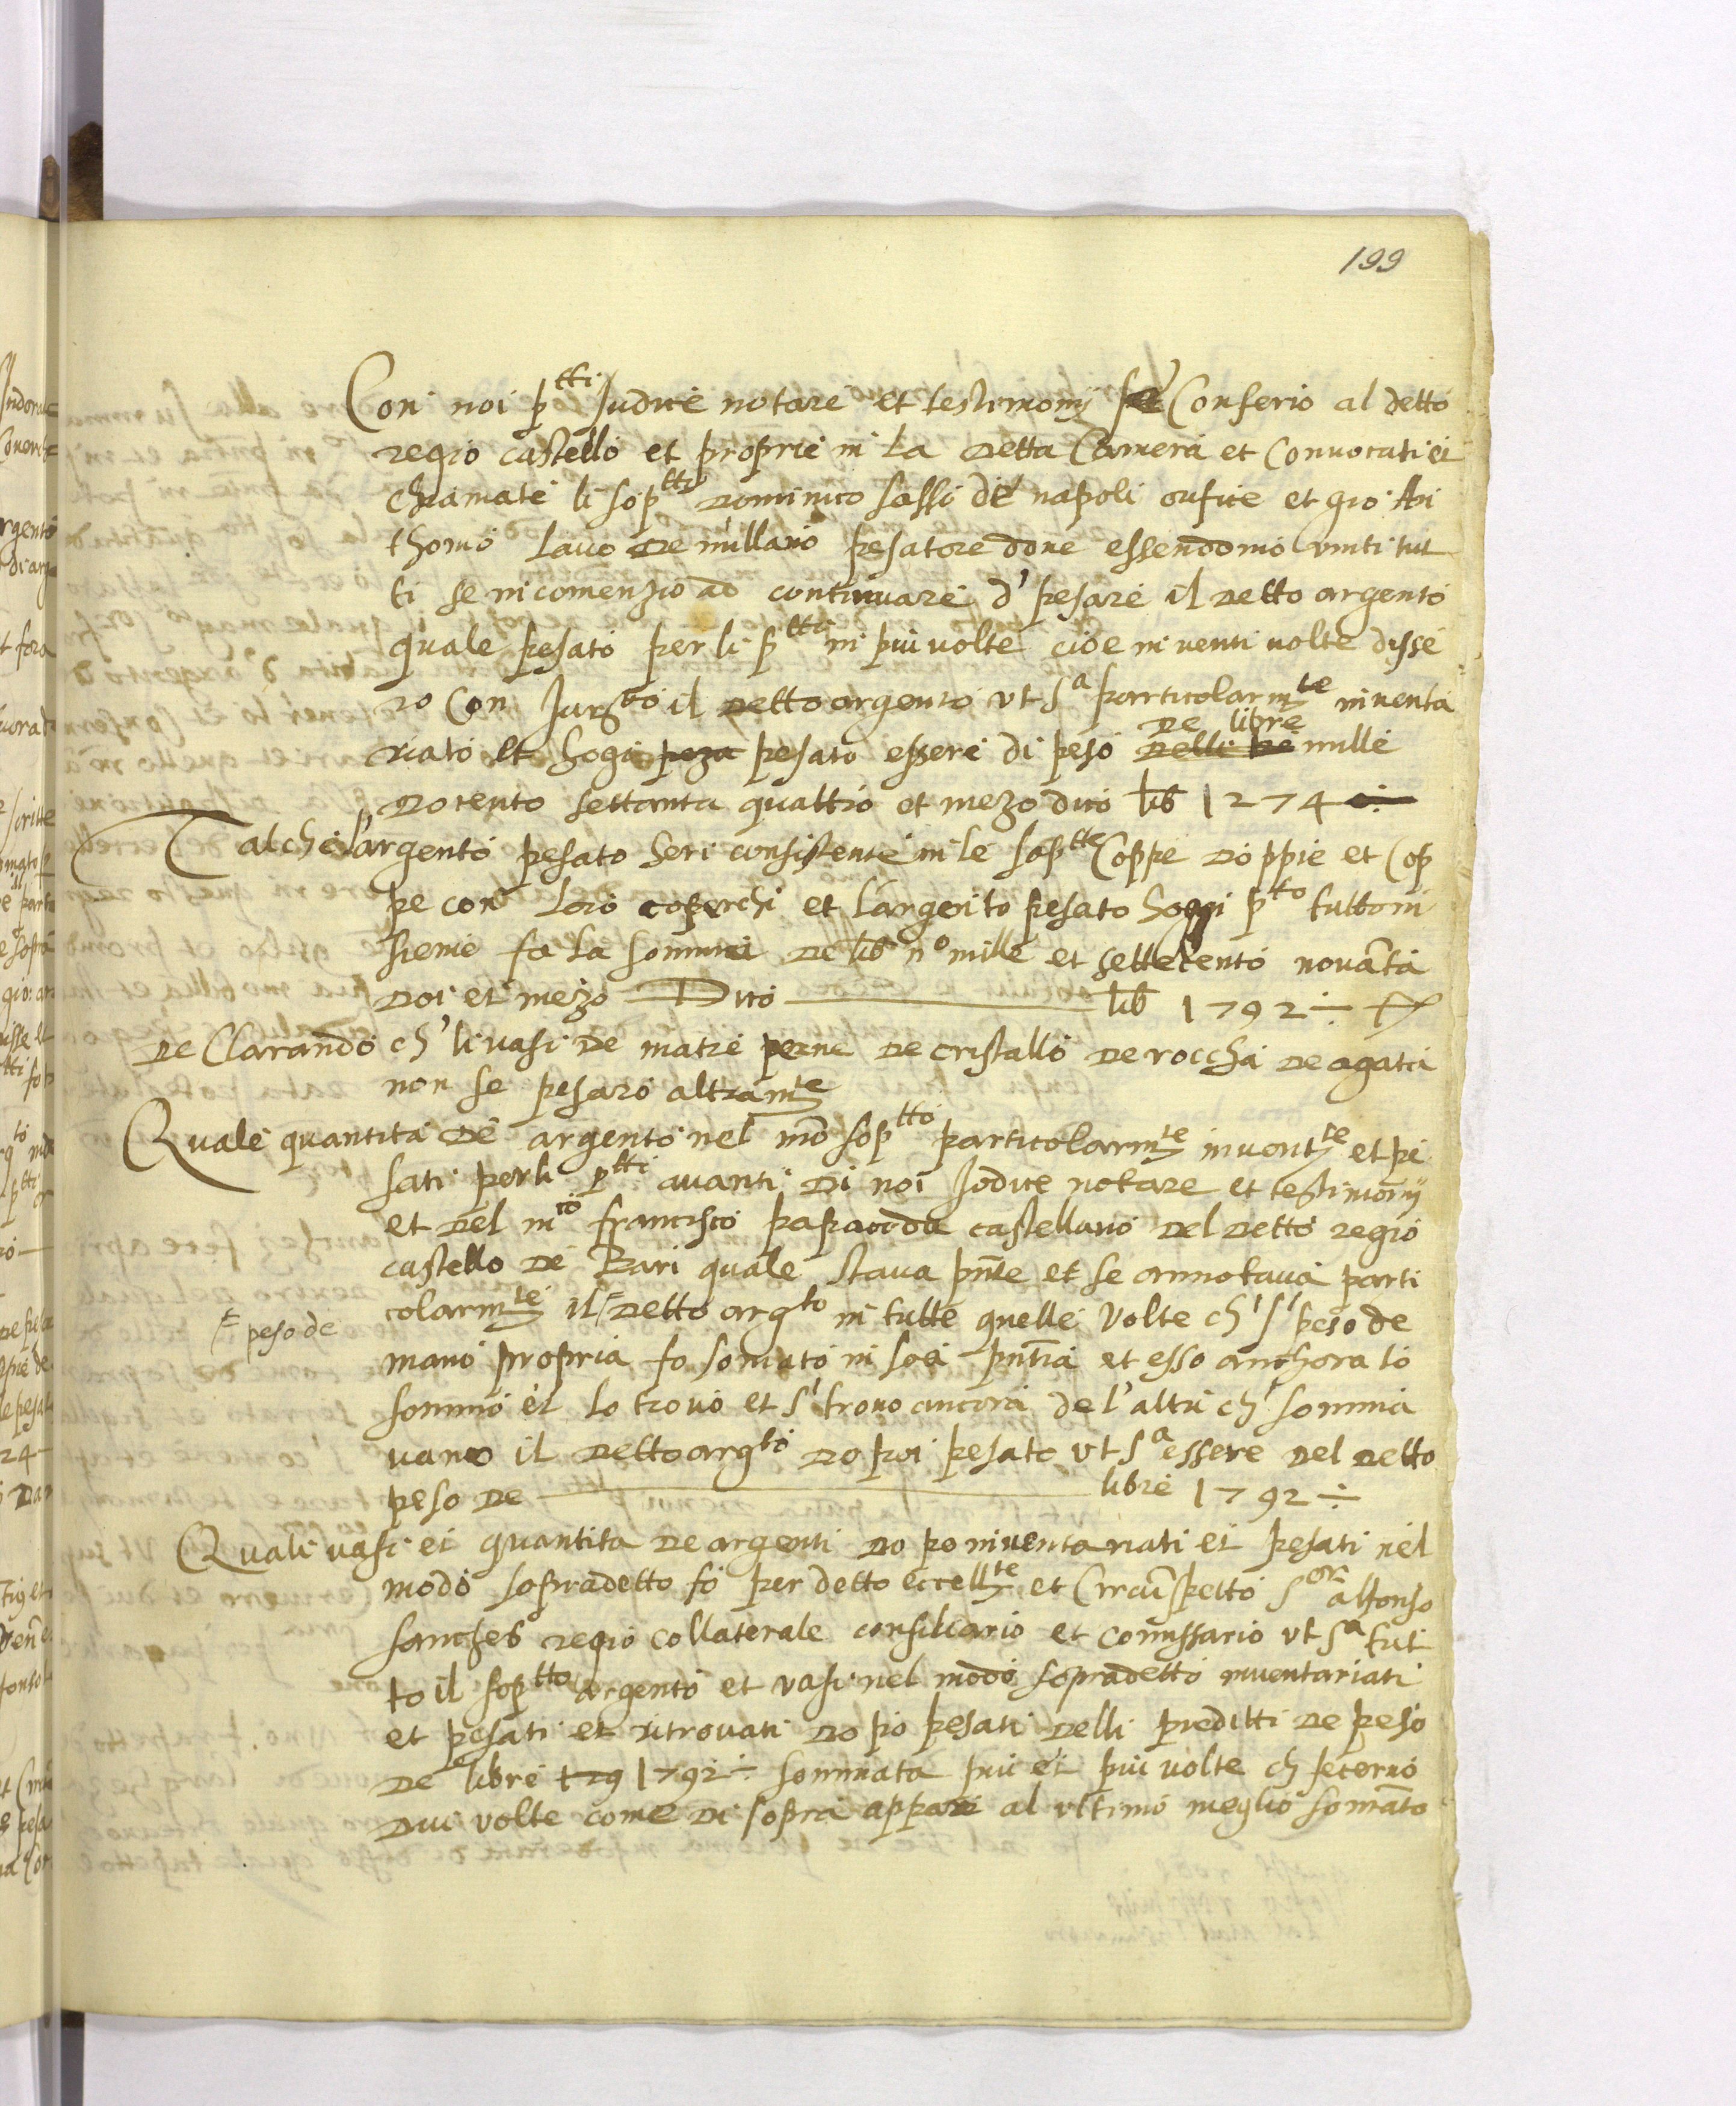 199
Con noi p^tti Judice notare et testimonij se Conferio al detto
regio castello et proprie in la detta Camera et Convocati et
chiamate li sop^tti Dominico sassi de napoli orefice et gio: An
thonio Lavo de mullario pesatore dove essendono uniti tut
ti se incomenzio ad continuare d' pesare il detto argento
quale pesato per li p^tti in piu volte cioe in venti volte disse
ro Con Jur^to il detto argento ut s^a particolarm^te inventa
de libre
riato et hogi peza pesato essere di peso delli pe mille
docento settanta quattro et mezo dico lib 1274 ÷
Talche l'argento pesato heri consistente in le sop^tte Coppe doppie et Cop
pe con loro coperchi et l'argento pesato hoggi p^to tutto in
sieme fa la somma de lib n^o mille et settecento novãta
doi et mezo Dico lib 1792 ÷
De Clarando ch' li vasi de matre perne de cristallo de roccha de agata
non se pesaro altram^te
Quale quantita de argento nel mõ sop^tto particolarm^te invent^te et pe
sati per li p^tti avanti di noi Jodice notare et testimonij
et del m^co francisco papacoda castellano del detto regio
castello de Bari quale stava pñte et se annotava parti
colarm^te il detto arg^to in tutte quelle volte ch' s' peso de
peso de
mano propria fo somato in soa pñtia et esso anchora lo
sommo et lo trovo et s' trovo ancora de l'altri ch' somma
vano il detto arg^to dopoi pesato ut s^a essere del detto
peso de libre 1792 ÷
Quali vasi et quantita de argenti dopo inventariati et pesati nel
modo sopradetto fo per detto eccell^te et Circũspetto s^or alfonso
sanches regio collaterale consiliario et comissario ut s^a tut
to il sop^tto argento et vasi nel modo sopradetto inventariati
et pesati et ritrovati dopo pesati delli preditti de peso
de libre 179 1792 ÷ sommata piu et piu volte ch fecerno
dui volte come di sopra appare al ultimo meglio somãto